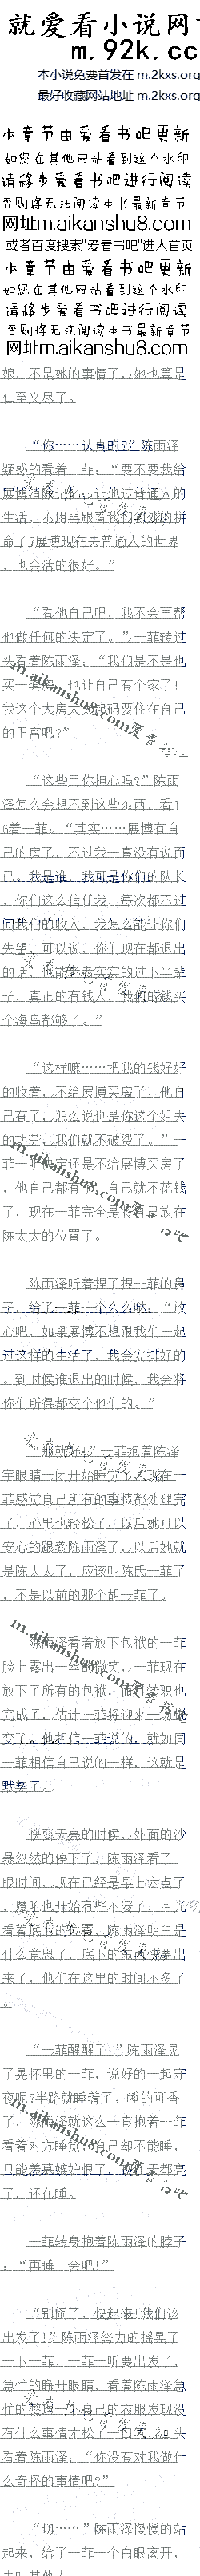 就爱看小说网
m.92k.cc
本小说免费首发在 m.2kxs.org
最好收藏网站地址 m.2kxs.org
本章节由爱看书吧更新
如您在其他网站看到这个水印
请移步爱看书吧进行阅读
否则将无法阅读本书最新章节
网址m.aikanshu8.com
或者百度搜索"爱看书吧"进入首页
本章节由爱看书吧更新
如您在其他网站看到这个水印
请移步爱看书吧进行阅读
否则将无法阅读本书最新章节
网址m.aikanshu8.com
娘，不是她的事情了，她也算是
仁至义尽了。
“你……认真的？”陈雨泽
疑惑的看着一菲，“要不要我给
展博消除记忆，让他过普通人的
生活，不用再跟着我们到处的拼
命了？展博现在去普通人的世界
，也会活的很好。”
“看他自己吧，我不会再帮
他做任何的决定了。”一菲转过
头看着陈雨泽，“我们是不是也
买一套房，也让自己有个家了！
我这个大房太太起码要住在自己
的正宫吧？”
“这些用你担心吗？”陈雨
泽怎么会想不到这些东西，看1
6着一菲，“其实……展博有自
己的房了，不过我一直没有说而
已。我是谁，我可是你们的队长
，你们这么信任我，每次都不过
问我们的收入，我怎么能让你们
失望，可以说，你们现在都退出
的话，也能舒舒
的过下半辈
子，真正的有钱人，我们的钱买
个海岛都够了。”
“这样嘛……把我的钱好好
的收着，不给展博买房了，他自
己有了，怎么说也是你这个姐夫
的功劳，我们就不破费了。”一
菲一听
还是不给展博买房了
，他自己都有了，自己就不花钱
了，现在一菲完全是把自己放在
陈太太的位置了。
陈雨泽听着捏了捏一菲的鼻
子，给了一菲一个么么哒，“放
心吧，如果展博不想跟我们一起
过这样的生活了，我会安排好的
，到时候谁退出的时候，我会将
你们所得都交个他们的。”
“那就好。”一菲抱着陈泽
宇眼睛一闭开始睡觉了，现在一
菲感觉自己所有的事情都处理完
了，心里也轻松了，以后她可以
安心的跟着陈雨泽了，以后她就
是陈太太了，应该叫陈氏一菲了
，不是以前的那个胡一菲了。
陈雨泽看着放下包袱的一菲
脸上露出一丝的微笑，一菲现在
放下了所有的包袱，
职也
完成了，估计一菲将迎来一场蜕
变了。他相信一菲说的，就如同
一菲相信自己说的一样，这就是
默契了。
快到天亮的时候，外面的沙
暴忽然的停下了，陈雨泽看了一
眼时间，现在已经是早上六点了
，魔吼也开始有些不安了，目光
看着底下的位置，陈雨泽明白是
什么意思了，底下的东西快要出
来了，他们在这里的时间不多了
。
“一菲醒醒了！”陈雨泽晃
了晃怀里的一菲，说好的一起守
夜呢？半路就睡着了，睡的可香
了，陈雨泽就这么一直抱着一菲
看着对方睡觉，自己却不能睡，
只能羡慕嫉妒恨了，现在天都亮
了，还在睡。
一菲转身抱着陈雨泽的脖子
，“再睡一会吧！”
“别闹了，快起来！我们该
出发了！”陈雨泽努力的摇晃了
一下一菲，一菲一听要出发了，
急忙的睁开眼睛，看着陈雨泽急
忙的整理一下自己的衣服发现没
有什么事情才松了一口气，回头
看着陈雨泽，“你没有对我做什
么奇怪的事情吧？”
“切……”陈雨泽慢慢的站
起来，给了一菲一个白眼离开，